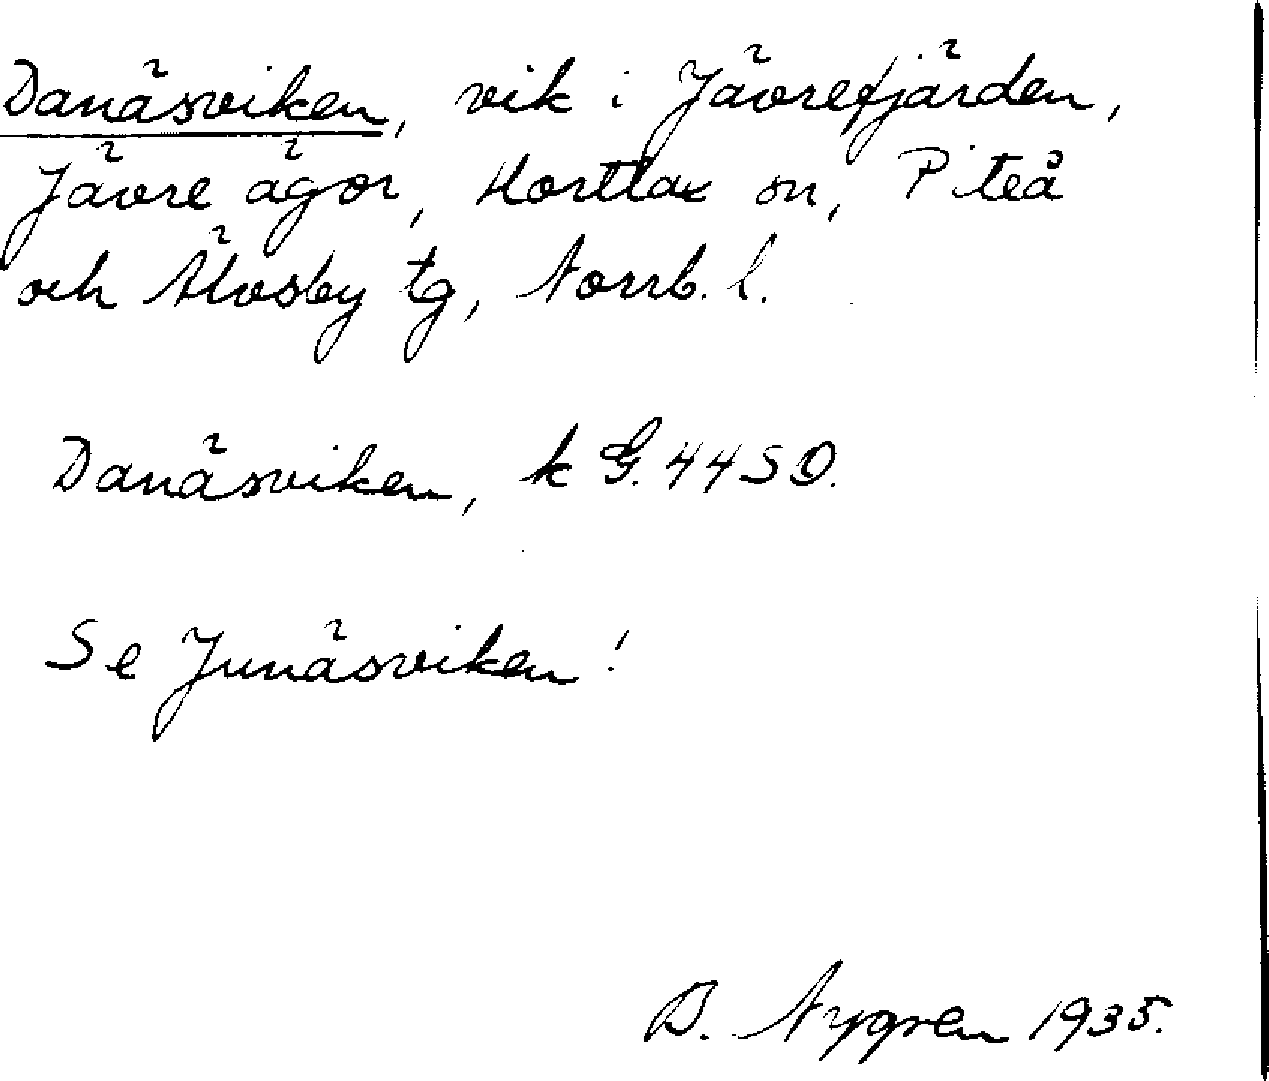 Danäsviken, vik i Jävrefjärden,
Jävre ägor, Hortlax sn, Piteå
och Älvsby tg, Norrb. l.
Danäsviken, k G. 44 S O.
Se Junäsviken!
B. Nygren 1935.